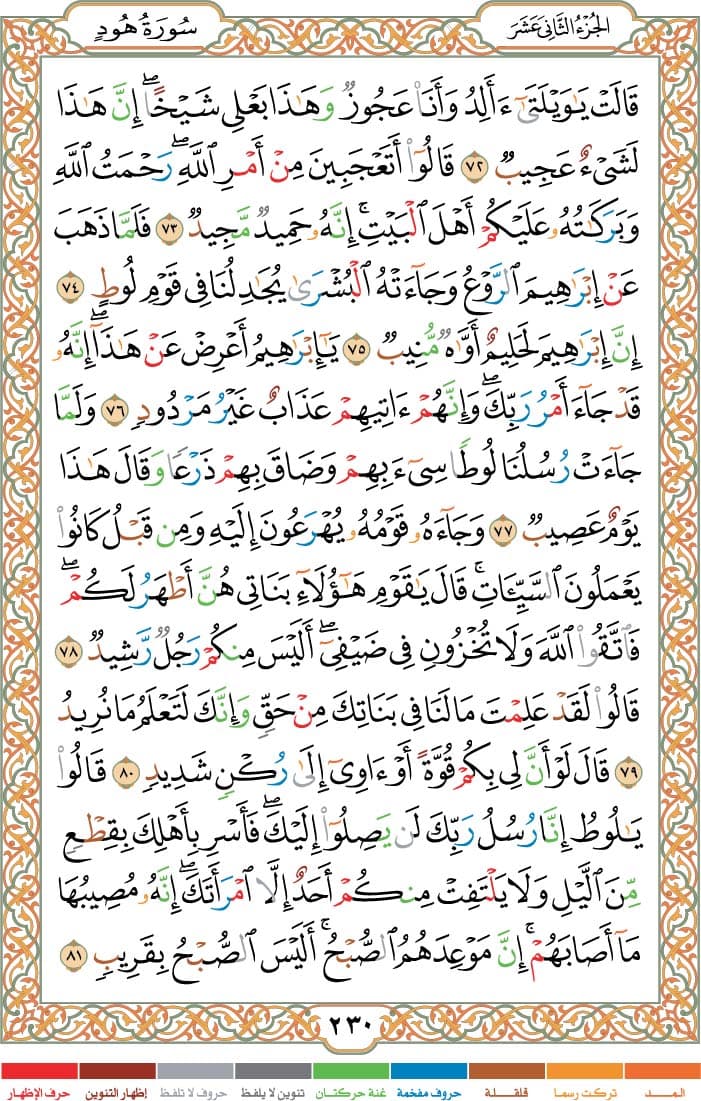 الجُزْءُ الثَّانِي عَشَرَ
سُورَةُ هُودٍ
قَالَتْ يَٰوَيْلَتَىٰٓ ءَأَلِدُ وَأَنَا۠ عَجُوزٌ وَهَٰذَا بَعْلِى شَيْخًا ۖ إِنَّ هَٰذَا
لَشَىْءٌ عَجِيبٌ ٧٢ قَالُوٓا۟ أَتَعْجَبِينَ مِنْ أَمْرِ ٱللَّهِ ۖ رَحْمَتُ ٱللَّهِ
وَبَرَكَٰتُهُۥ عَلَيْكُمْ أَهْلَ ٱلْبَيْتِ ۚ إِنَّهُۥ حَمِيدٌ مَّجِيدٌ ٧٣ فَلَمَّا ذَهَبَ
عَنْ إِبْرَٰهِيمَ ٱلرَّوْعُ وَجَآءَتْهُ ٱلْبُشْرَىٰ يُجَٰدِلُنَا فِى قَوْمِ لُوطٍ ٧٤
إِنَّ إِبْرَٰهِيمَ لَحَلِيمٌ أَوَّٰهٌ مُّنِيبٌ ٧٥ يَٰٓإِبْرَٰهِيمُ أَعْرِضْ عَنْ هَٰذَآ ۖ إِنَّهُۥ
قَدْ جَآءَ أَمْرُ رَبِّكَ ۖ وَإِنَّهُمْ ءَاتِيهِمْ عَذَابٌ غَيْرُ مَرْدُودٍ ٧٦ وَلَمَّا
جَآءَتْ رُسُلُنَا لُوطًا سِىٓءَ بِهِمْ وَضَاقَ بِهِمْ ذَرْعًا وَقَالَ هَٰذَا
يَوْمٌ عَصِيبٌ ٧٧ وَجَآءَهُۥ قَوْمُهُۥ يُهْرَعُونَ إِلَيْهِ وَمِن قَبْلُ كَانُوا۟
يَعْمَلُونَ ٱلسَّيِّـَٔاتِ ۚ قَالَ يَٰقَوْمِ هَٰٓؤُلَآءِ بَنَاتِى هُنَّ أَطْهَرُ لَكُمْ ۖ
فَٱتَّقُوا۟ ٱللَّهَ وَلَا تُخْزُونِ فِى ضَيْفِىٓ ۖ أَلَيْسَ مِنكُمْ رَجُلٌ رَّشِيدٌ ٧٨
قَالُوا۟ لَقَدْ عَلِمْتَ مَا لَنَا فِى بَنَاتِكَ مِنْ حَقٍّ وَإِنَّكَ لَتَعْلَمُ مَا نُرِيدُ
٧٩ قَالَ لَوْ أَنَّ لِى بِكُمْ قُوَّةً أَوْ ءَاوِىٓ إِلَىٰ رُكْنٍ شَدِيدٍ ٨٠ قَالُوا۟
يَٰلُوطُ إِنَّا رُسُلُ رَبِّكَ لَن يَصِلُوٓا۟ إِلَيْكَ ۖ فَأَسْرِ بِأَهْلِكَ بِقِطْعٍ
مِّنَ ٱلَّيْلِ وَلَا يَلْتَفِتْ مِنكُمْ أَحَدٌ إِلَّا ٱمْرَأَتَكَ ۖ إِنَّهُۥ مُصِيبُهَا
مَآ أَصَابَهُمْ ۚ إِنَّ مَوْعِدَهُمُ ٱلصُّبْحُ ۚ أَلَيْسَ ٱلصُّبْحُ بِقَرِيبٍ ٨١
٢٣٠
المـــد تركت رسما قلقـلـة حروف مفخمة غنة حركتان تنوين لا يلفظ حروف لا تلفظ إظهار التنوين حرف الإظهار